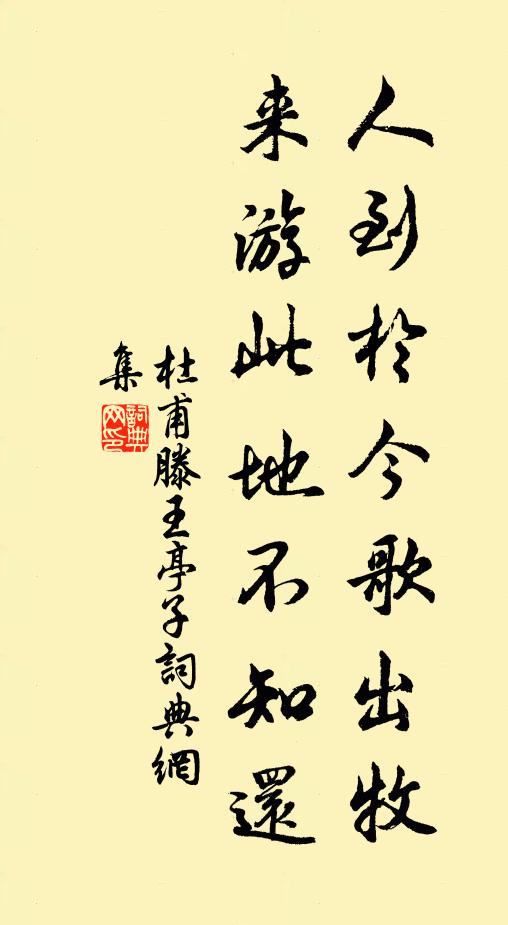 人到於今歌出牧
来游此地不知還
杜甫滕王亭子詞典網
集
詞典网印